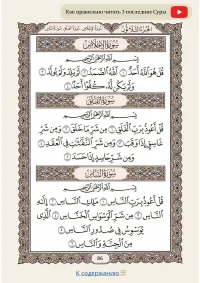 Как правильно читать 3 последние Суры
سورة الإخلاص
بِسْمِ اللَّهِ الرَّحْمَٰنِ الرَّحِيمِ
قُلْ هُوَ اللَّهُ أَحَدٌ ١ اللَّهُ الصَّمَدُ ٢ لَمْ يَلِدْ وَلَمْ يُولَدْ ٣
وَلَمْ يَكُن لَّهُ كُفُوًا أَحَدٌ ٤
سورة الفلق
بِسْمِ اللَّهِ الرَّحْمَٰنِ الرَّحِيمِ
قُلْ أَعُوذُ بِرَبِّ الْفَلَقِ ١ مِن شَرِّ مَا خَلَقَ ٢ وَمِن شَرِّ
غَاسِقٍ إِذَا وَقَبَ ٣ وَمِن شَرِّ النَّفَّاثَاتِ فِي الْعُقَدِ ٤
وَمِن شَرِّ حَاسِدٍ إِذَا حَسَدَ ٥
سورة الناس
بِسْمِ اللَّهِ الرَّحْمَٰنِ الرَّحِيمِ
قُلْ أَعُوذُ بِرَبِّ النَّاسِ ١ مَلِكِ النَّاسِ ٢ إِلَٰهِ
النَّاسِ ٣ مِن شَرِّ الْوَسْوَاسِ الْخَنَّاسِ ٤ الَّذِي
يُوَسْوِسُ فِي صُدُورِ النَّاسِ ٥
مِنَ الْجِنَّةِ وَالنَّاسِ ٦
86
К содержанию